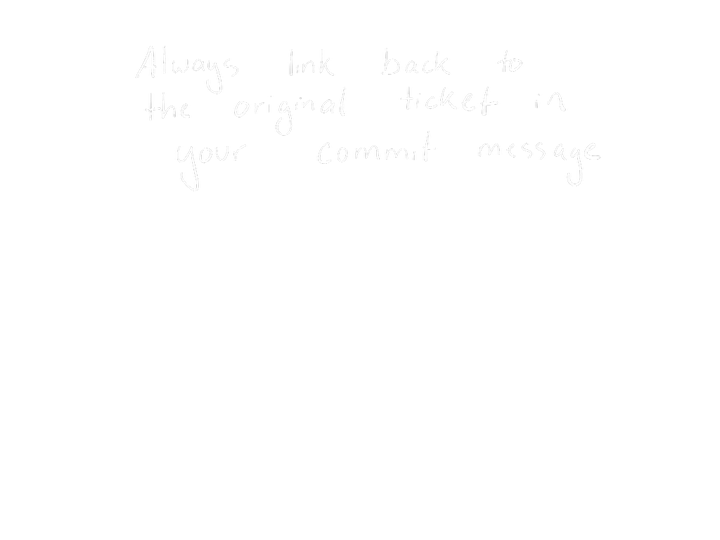 Always link back to
the original ticket in
your commit message